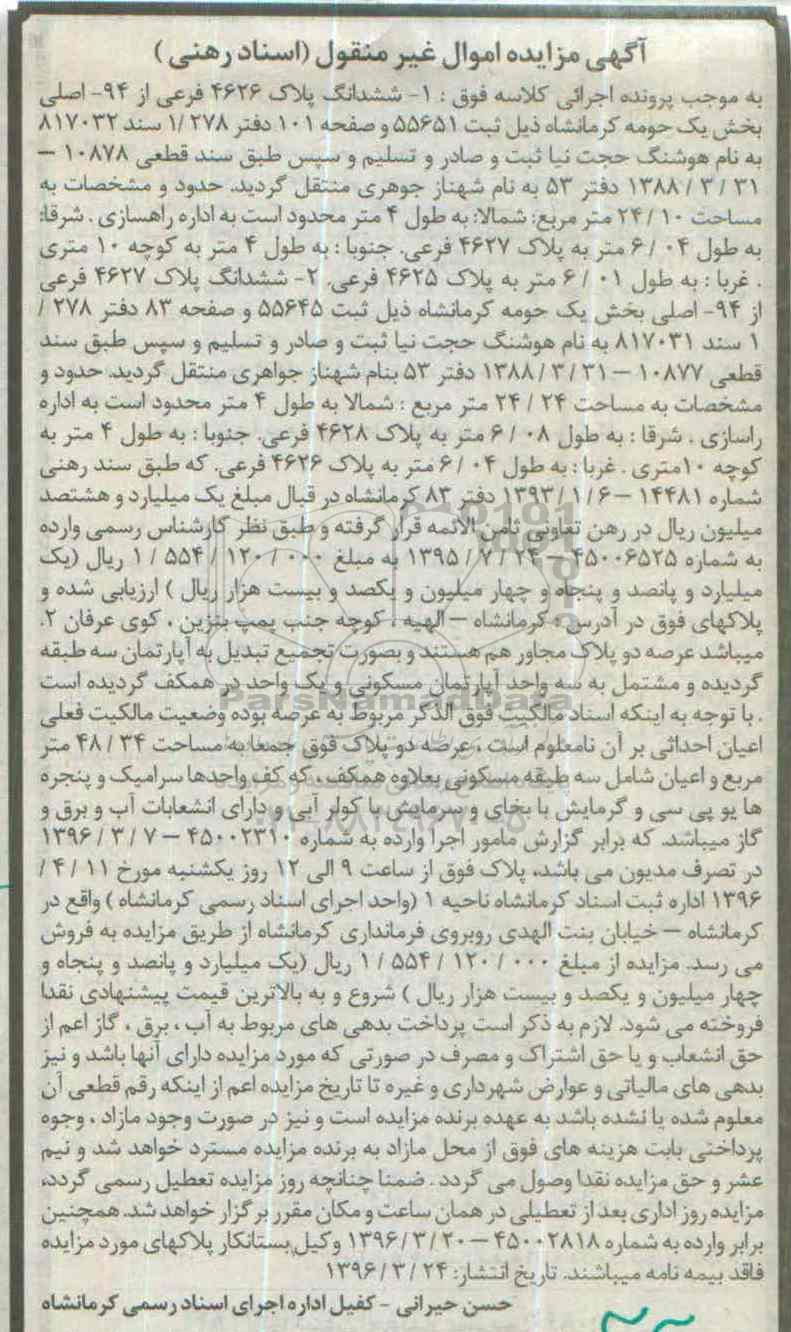 آگهی مزایده اموال غیر منقول (اسناد رهنی)
به موجب پرونده اجرائی کلاسه فوق : ۱- ششدانگ پلاک ۴۶۲۶ فرعی از ۹۴- اصلی
بخش یک حومه کرمانشاه ذیل ثبت ۵۵۶۵۱ و صفحه ۱۰۱ دفتر ۲۷۸ /۱ سند ۸۱۷۰۳۲
به نام هوشنگ حجت نیا ثبت و صادر و تسلیم و سپس طبق سند قطعی ۱۰۸۷۸ –
۳۱ / ۳ / ۱۳۸۸ دفتر ۵۳ به نام شهناز جوهری منتقل گردید. حدود و مشخصات به
مساحت ۱۰ / ۲۴ متر مربع: شمالا: به طول ۴ متر محدود است به اداره راهسازی . شرقا:
به طول ۰۴ / ۶ متر به پلاک ۴۶۲۷ فرعی. جنوبا : به طول ۴ متر به کوچه ۱۰ متری
. غربا : به طول ۰۱ / ۶ متر به پلاک ۴۶۲۵ فرعی. ۲- ششدانگ پلاک ۴۶۲۷ فرعی
از ۹۴- اصلی بخش یک حومه کرمانشاه ذیل ثبت ۵۵۶۴۵ و صفحه ۸۳ دفتر ۲۷۸ /
۱ سند ۸۱۷۰۳۱ به نام هوشنگ حجت نیا ثبت و صادر و تسلیم و سپس طبق سند
قطعی ۱۰۸۷۷ – ۳۱ / ۳ / ۱۳۸۸ دفتر ۵۳ بنام شهناز جواهری منتقل گردید. حدود و
مشخصات به مساحت ۲۴ / ۲۴ متر مربع : شمالا به طول ۴ متر محدود است به اداره
راسازی . شرقا : به طول ۰۸ / ۶ متر به پلاک ۴۶۲۸ فرعی. جنوبا : به طول ۴ متر به
کوچه ۱۰متری . غربا : به طول ۰۴ / ۶ متر به پلاک ۴۶۲۶ فرعی. که طبق سند رهنی
شماره ۱۴۴۸۱ – ۶ / ۱ / ۱۳۹۳ دفتر ۸۳ کرمانشاه در قبال مبلغ یک میلیارد و هشتصد
میلیون ریال در رهن تعاونی ثامن الائمه قرار گرفته و طبق نظر کارشناس رسمی وارده
به شماره ۴۵۰۰۶۵۲۵ – ۲۴ / ۷ / ۱۳۹۵ به مبلغ ۰۰۰ / ۱۲۰ / ۵۵۴ / ۱ ریال (یک
میلیارد و پانصد و پنجاه و چهار میلیون و یکصد و بیست هزار ریال ) ارزیابی شده و
پلاکهای فوق در آدرس : کرمانشاه – الهیه ، کوچه جنب پمپ بنزین ، کوی عرفان ۲.
میباشد عرصه دو پلاک مجاور هم هستند و بصورت تجمیع تبدیل به آپارتمان سه طبقه
گردیده و مشتمل به سه واحد آپارتمان مسکونی و یک واحد در همکف گردیده است
. با توجه به اینکه اسناد مالکیت فوق الذکر مربوط به عرصه بوده وضعیت مالکیت فعلی
اعیان احداثی بر آن نامعلوم است ، عرصه دو پلاک فوق جمعا به مساحت ۳۴ / ۴۸ متر
مربع و اعیان شامل سه طبقه مسکونی بعلاوه همکف ، که کف واحدها سرامیک و پنجره
ها یو پی سی و گرمایش با بخای و سرمایش با کولر آبی و دارای انشعابات آب و برق و
گاز میباشد. که برابر گزارش مامور اجرا وارده به شماره ۴۵۰۰۲۳۱۰ – ۷ / ۳ / ۱۳۹۶
در تصرف مدیون می باشد، پلاک فوق از ساعت ۹ الی ۱۲ روز یکشنبه مورخ ۱۱ / ۴ /
۱۳۹۶ اداره ثبت اسناد کرمانشاه ناحیه ۱ (واحد اجرای اسناد رسمی کرمانشاه ) واقع در
کرمانشاه – خیابان بنت الهدی روبروی فرمانداری کرمانشاه از طریق مزایده به فروش
می رسد. مزایده از مبلغ ۰۰۰ / ۱۲۰ / ۵۵۴ / ۱ ریال (یک میلیارد و پانصد و پنجاه و
چهار میلیون و یکصد و بیست هزار ریال ) شروع و به بالاترین قیمت پیشنهادی نقدا
فروخته می شود. لازم به ذکر است پرداخت بدهی های مربوط به آب ، برق ، گاز اعم از
حق انشعاب و یا حق اشتراک و مصرف در صورتی که مورد مزایده دارای آنها باشد و نیز
بدهی های مالیاتی و عوارض شهرداری و غیره تا تاریخ مزایده اعم از اینکه رقم قطعی آن
معلوم شده یا نشده باشد به عهده برنده مزایده است و نیز در صورت وجود مازاد ، وجوه
پرداختی بابت هزینه های فوق از محل مازاد به برنده مزایده مسترد خواهد شد و نیم
عشر و حق مزایده نقدا وصول می گردد . ضمنا چنانچه روز مزایده تعطیل رسمی گردد،
مزایده روز اداری بعد از تعطیلی در همان ساعت و مکان مقرر برگزار خواهد شد. همچنین
برابر وارده به شماره ۴۵۰۰۲۸۱۸ – ۲۰ / ۳ / ۱۳۹۶ وکیل بستانکار پلاکهای مورد مزایده
فاقد بیمه نامه میباشند. تاریخ انتشار: ۲۴ / ۳ / ۱۳۹۶
حسن حیرانی - کفیل اداره اجرای اسناد رسمی کرمانشاه
ParsNamadData